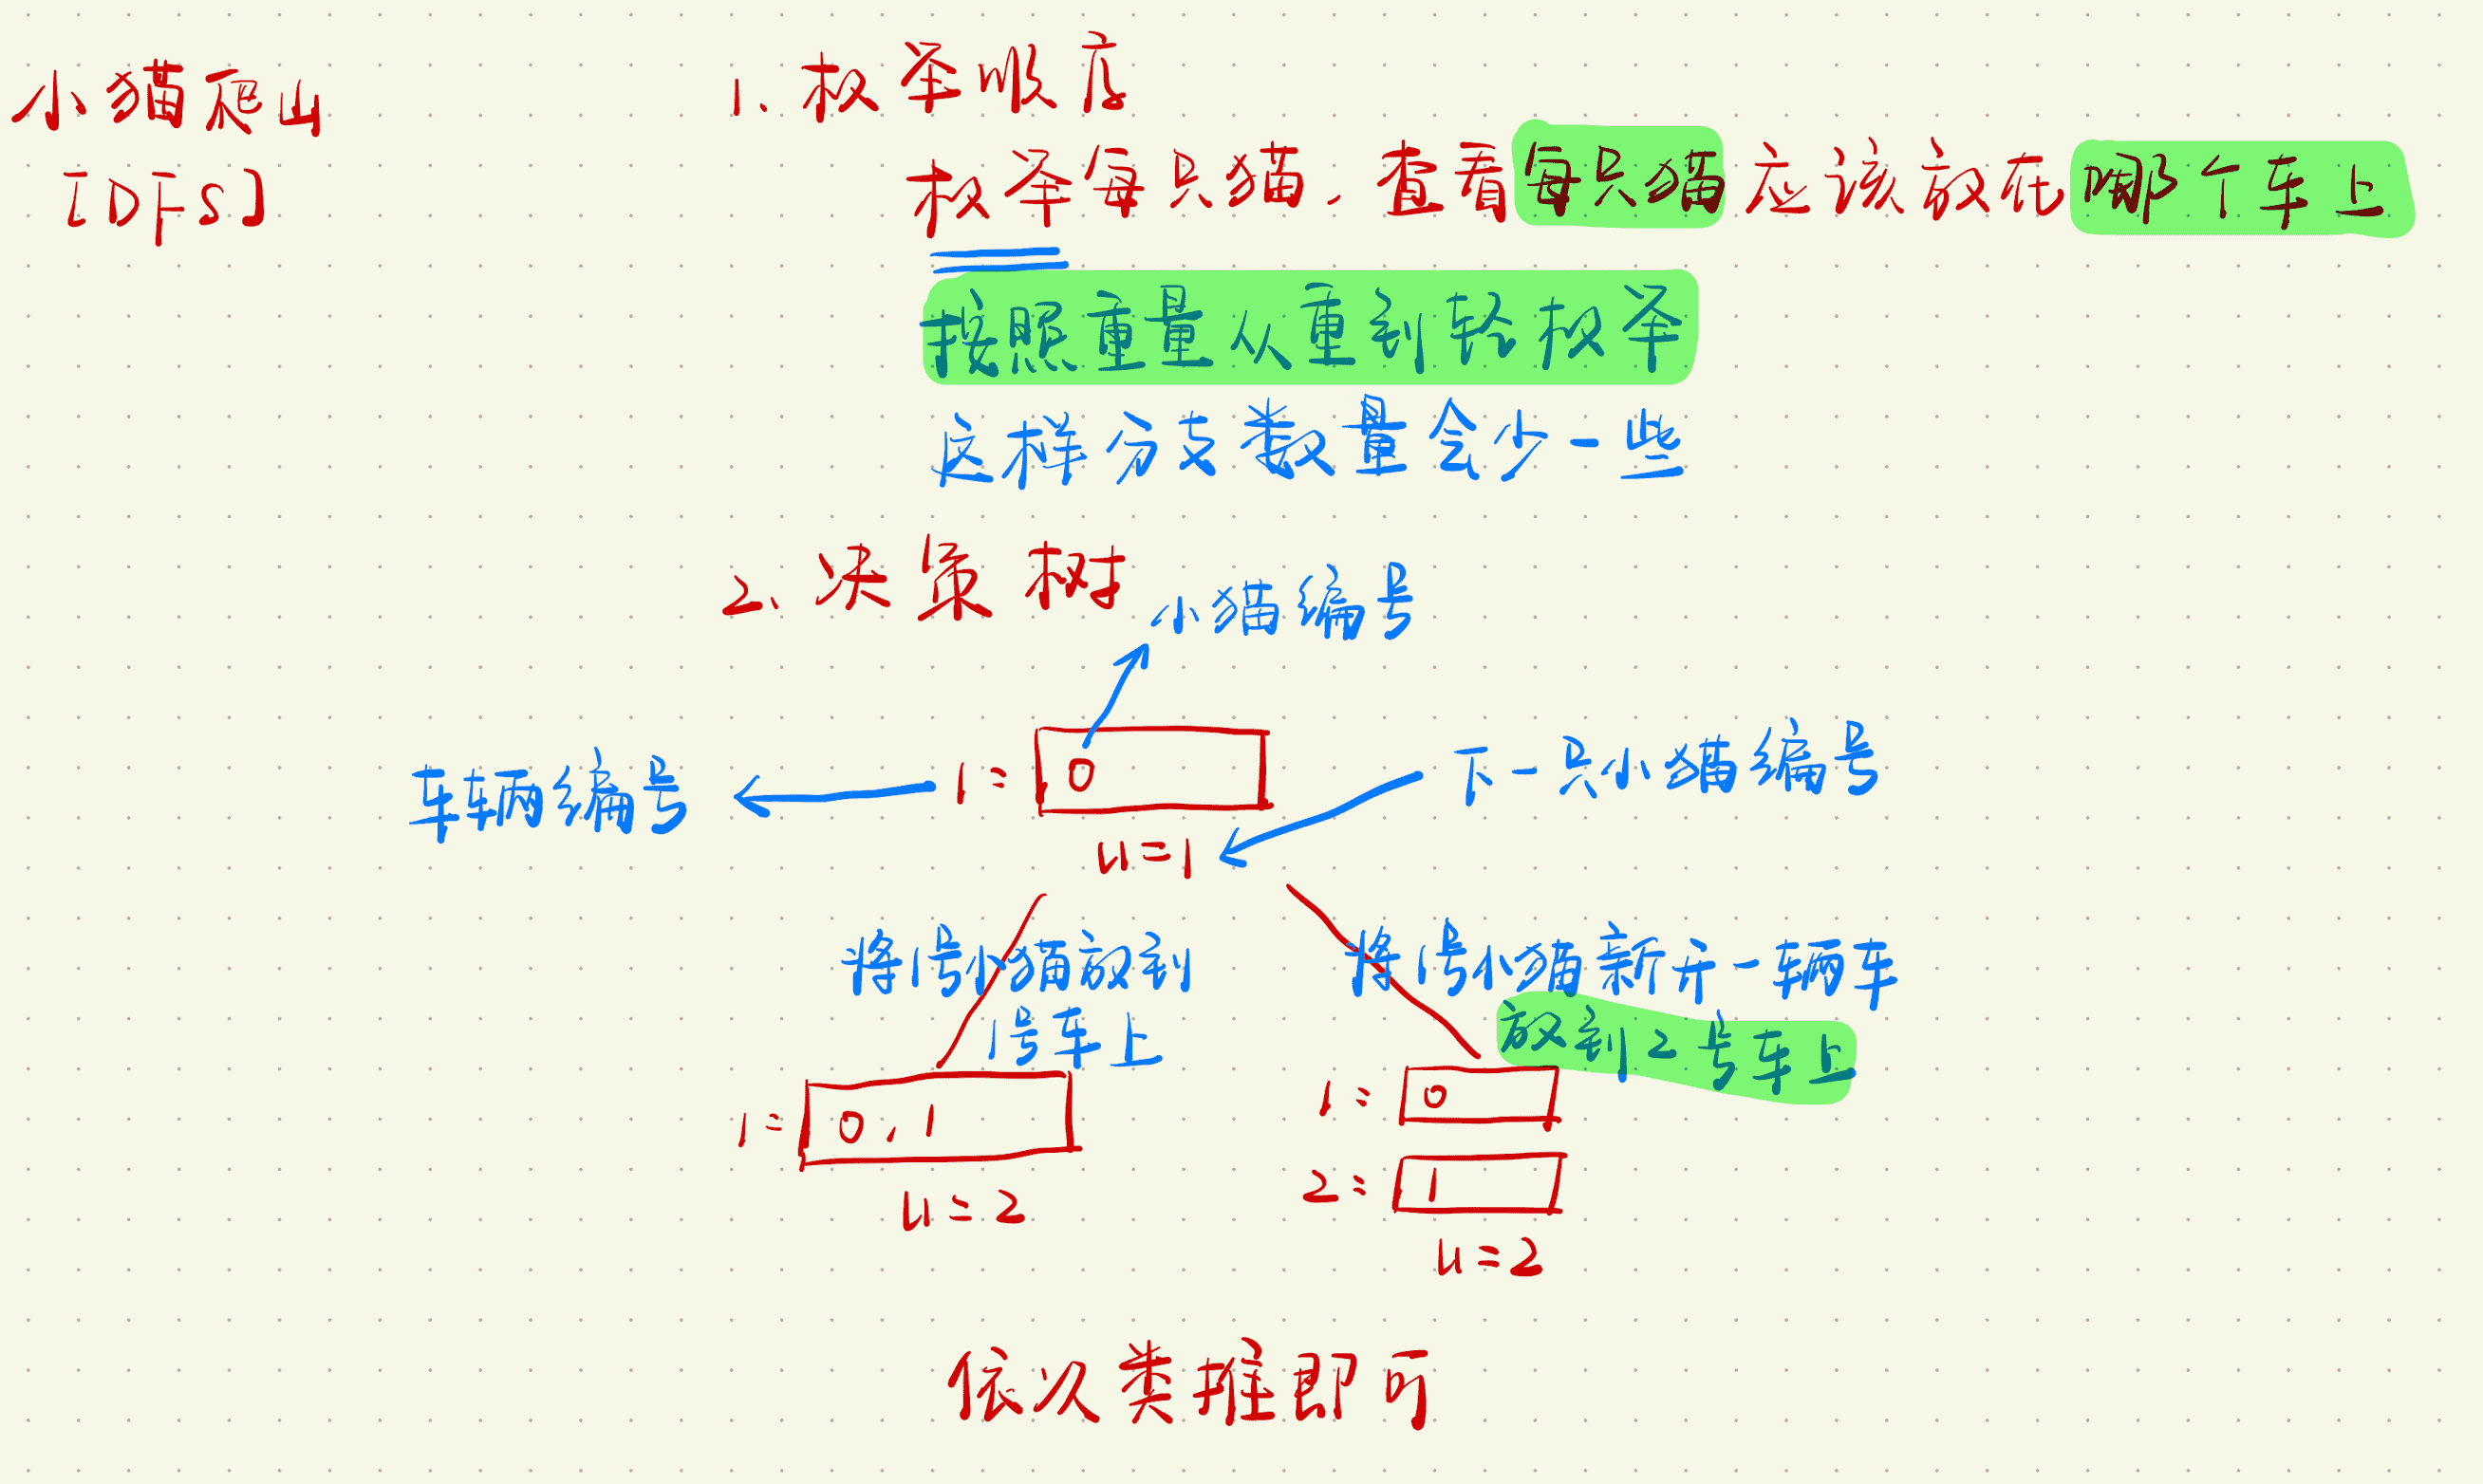 小猫爬山
[DFS]
1、枚举顺序
枚举每只猫，查看每只猫应该放在哪个车上
按照重量从重到轻枚举
这样分支数量会少一些
2、决策树
小猫编号
车辆编号
1:
0
下一只小猫编号
u=1
将1号小猫放到
1号车上
将1号小猫新开一辆车
放到2号车上
1:
0,1
u=2
1:
0
2:
1
u=2
依次类推即可